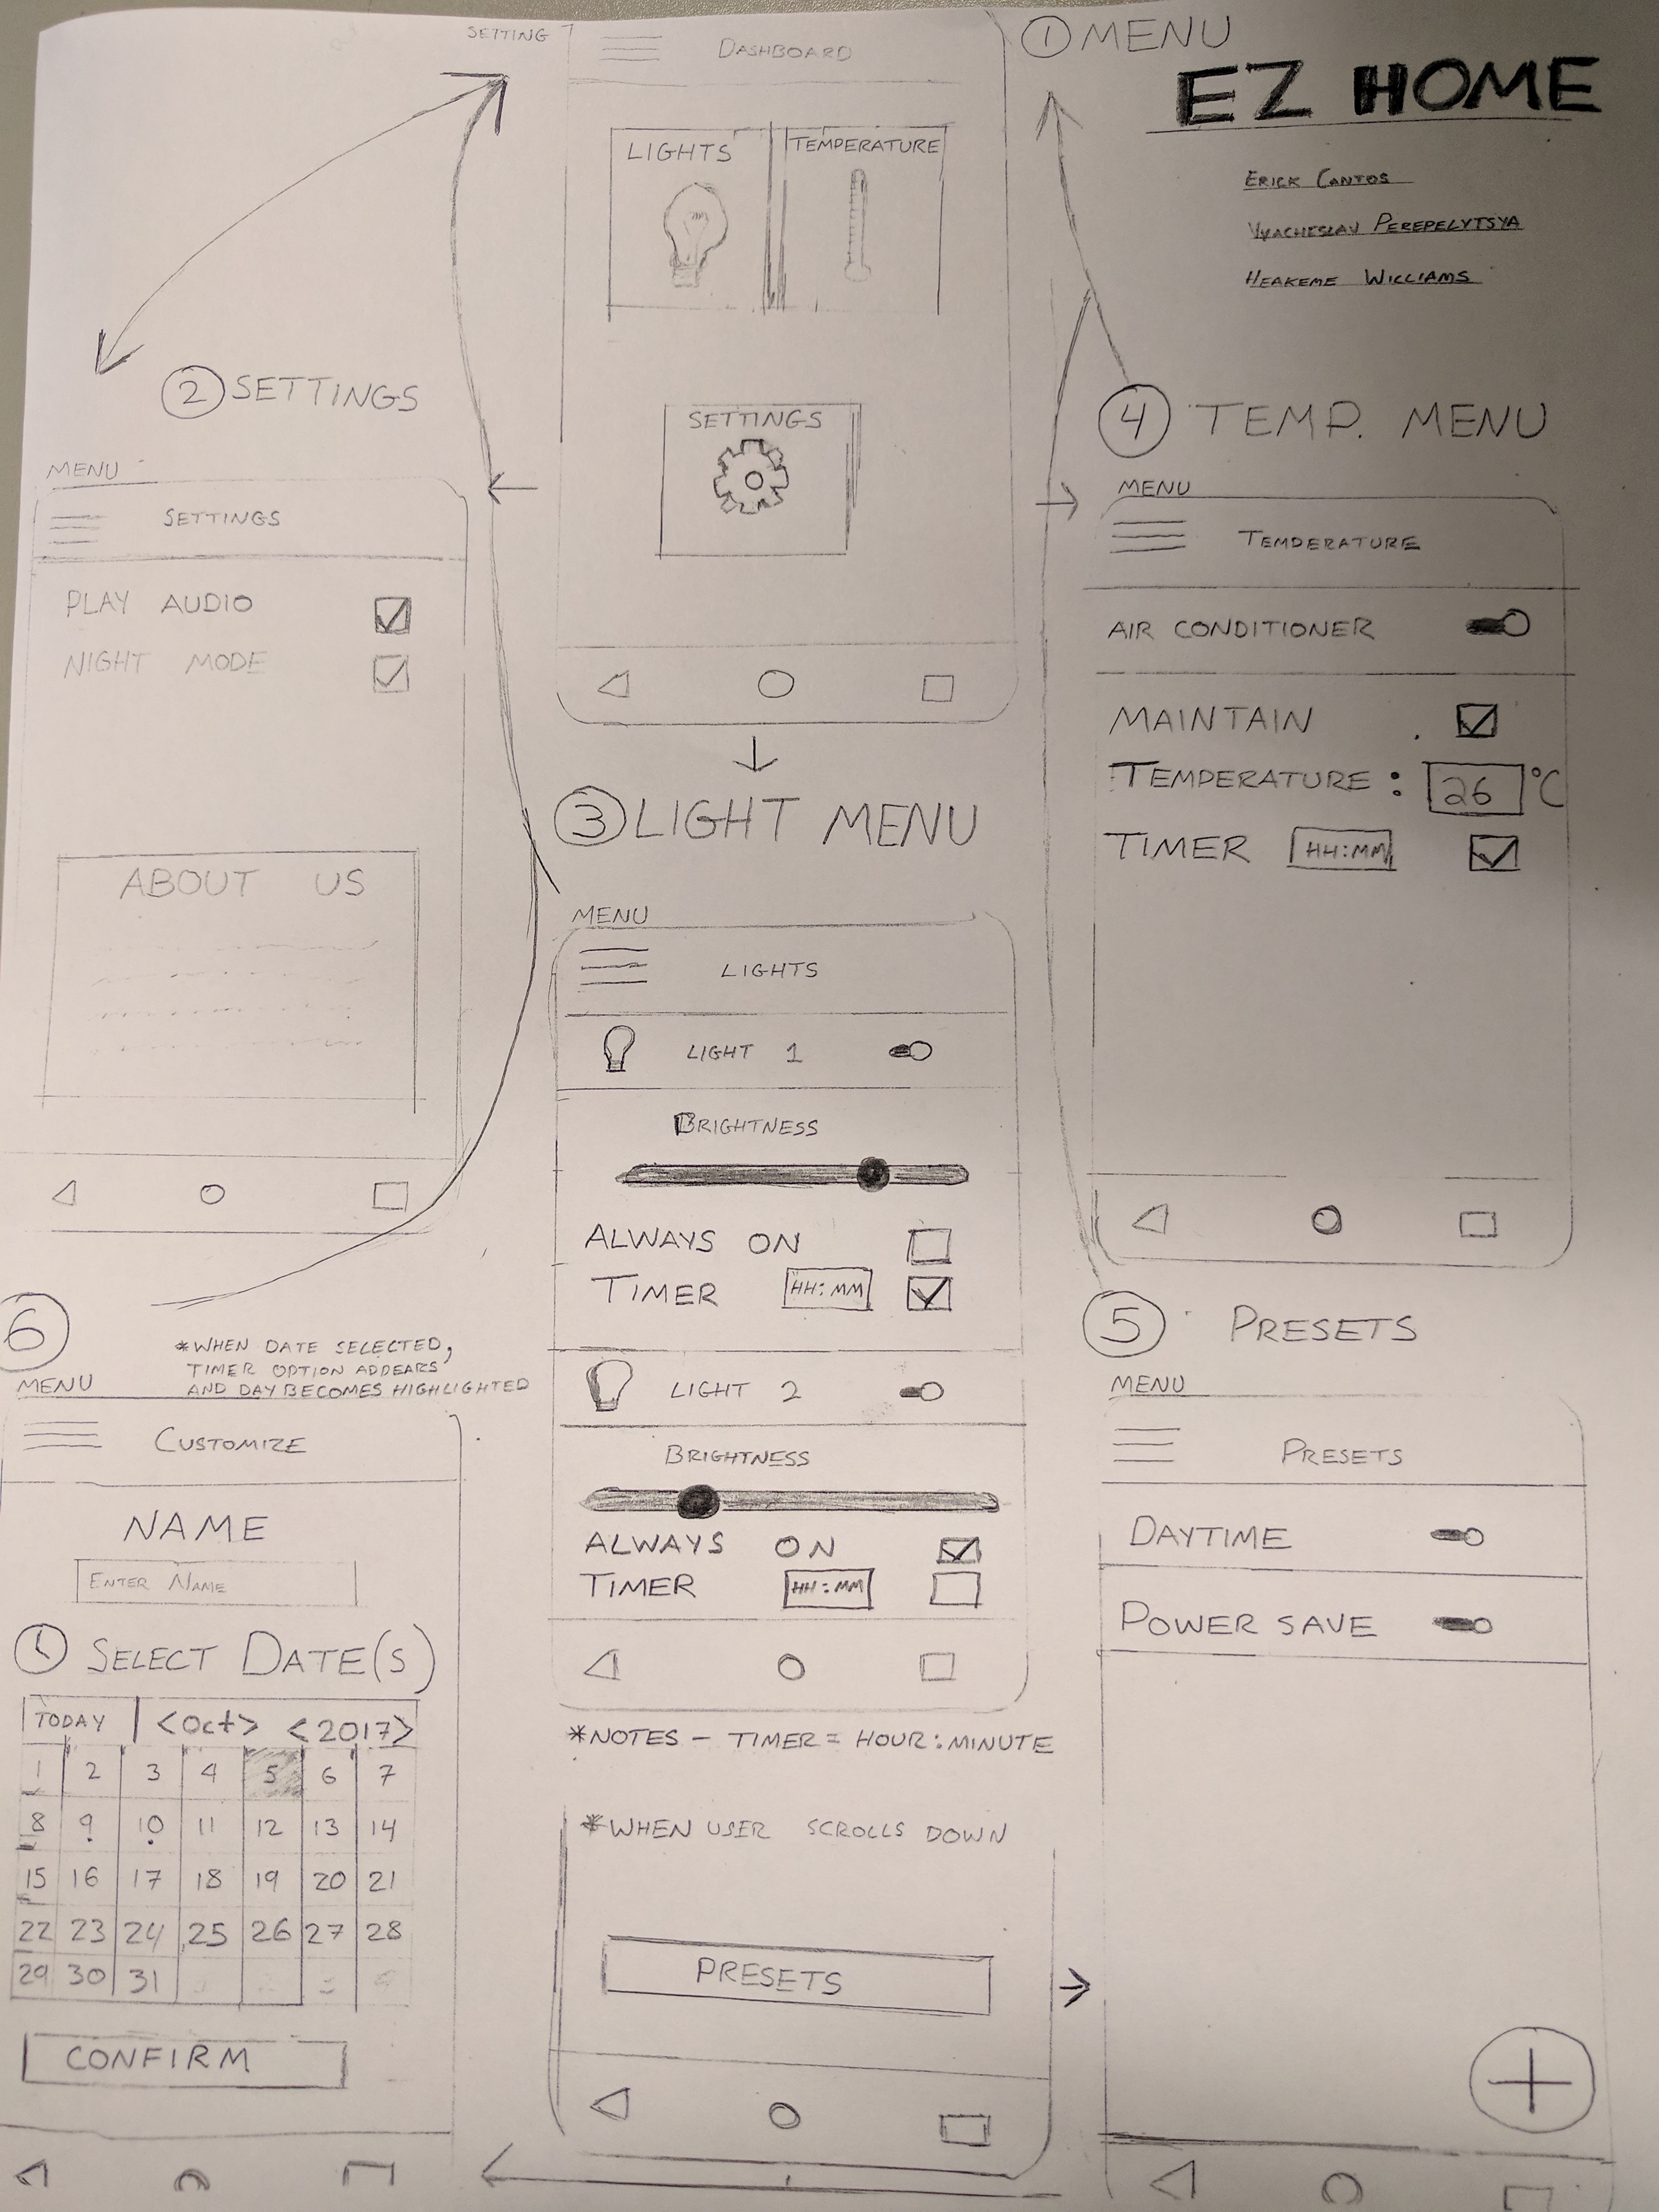 SETTING
DASHBOARD
LIGHTS
TEMPERATURE
SETTINGS
1 MENU
EZ HOME
ERICK CANTOS
VYACHESLAV PEREPELYTSYA
HEAKEME WILLIAMS
2 SETTINGS
MENU
SETTINGS
PLAY AUDIO
NIGHT MODE
ABOUT US
3 LIGHT MENU
MENU
LIGHTS
LIGHT 1
BRIGHTNESS
ALWAYS ON
TIMER HH:MM
LIGHT 2
BRIGHTNESS
ALWAYS ON
TIMER HH:MM
*NOTES - TIMER = HOUR:MINUTE
*WHEN USER SCROLLS DOWN
PRESETS
4 TEMP. MENU
MENU
TEMPERATURE
AIR CONDITIONER
MAINTAIN
TEMPERATURE: 26 °C
TIMER HH:MM
5 PRESETS
MENU
PRESETS
DAYTIME
POWER SAVE
+
6
*WHEN DATE SELECTED,
TIMER OPTION APPEARS
AND DAY BECOMES HIGHLIGHTED
MENU
CUSTOMIZE
NAME
ENTER NAME
SELECT DATE(S)
TODAY <Oct> <2017>
1 2 3 4 5 6 7
8 9 10 11 12 13 14
15 16 17 18 19 20 21
22 23 24 25 26 27 28
29 30 31
CONFIRM